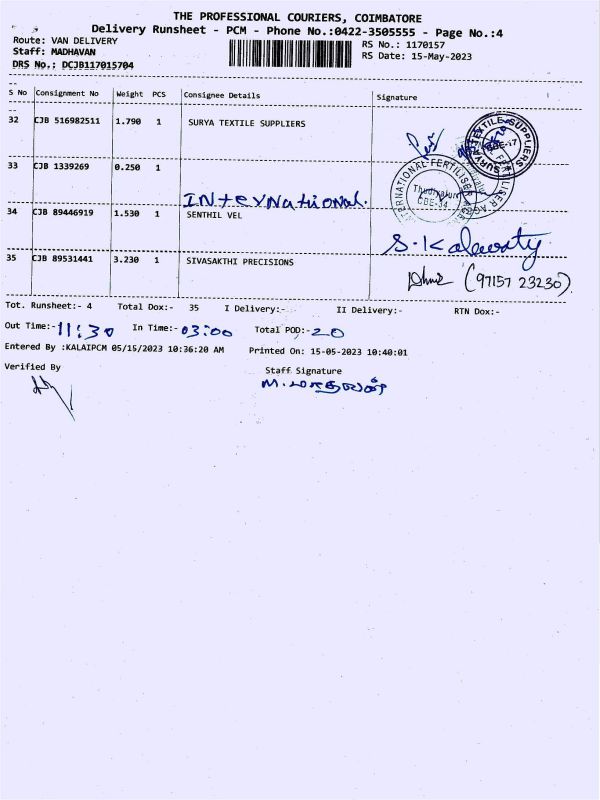 THE PROFESSIONAL COURIERS, COIMBATORE
Delivery Runsheet - PCM - Phone No.:0422-3505555 - Page No.:4
Route: VAN DELIVERY
RS No.: 1170157
Staff: MADHAVAN
RS Date: 15-May-2023
DRS No.: DCJB117015704
S No Consignment No Weight PCS Consignee Details Signature
32 CJB 516982511 1.790 1 SURYA TEXTILE SUPPLIERS
33 CJB 1339269 0.250 1 INterNational.
34 CJB 89446919 1.530 1 SENTHIL VEL
35 CJB 89531441 3.230 1 SIVASAKTHI PRECISIONS
(97157 23230)
Thudiyalur
CBE-34
CBE-17
Tot. Runsheet:- 4 Total Dox:- 35 I Delivery:- II Delivery:- RTN Dox:-
Out Time:- 11:30 In Time:- 03:00 Total POD:- 20
Entered By :KALAIPCM 05/15/2023 10:36:20 AM Printed On: 15-05-2023 10:40:01
Verified By Staff Signature